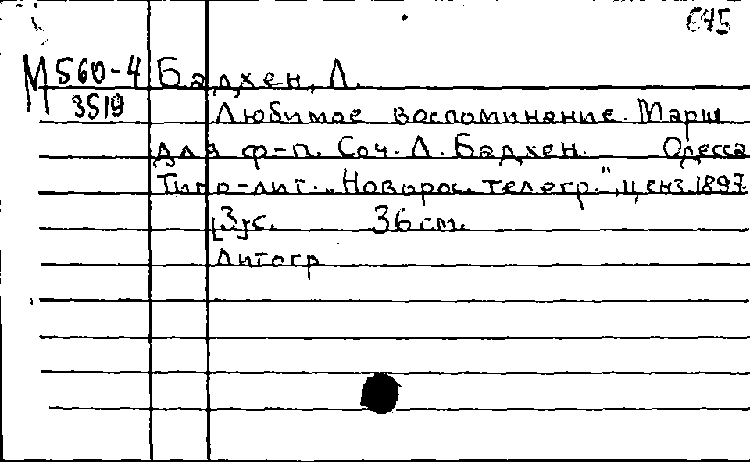 645
М 560-4 Бадхен, Л.
3519
Любимое воспоминание. Марш
для ф-п. Соч. Л. Бадхен. Одесса
Типо-лит. „Новорос. телегр.", ценз. 1897
[3]с. 36 см.
Литогр